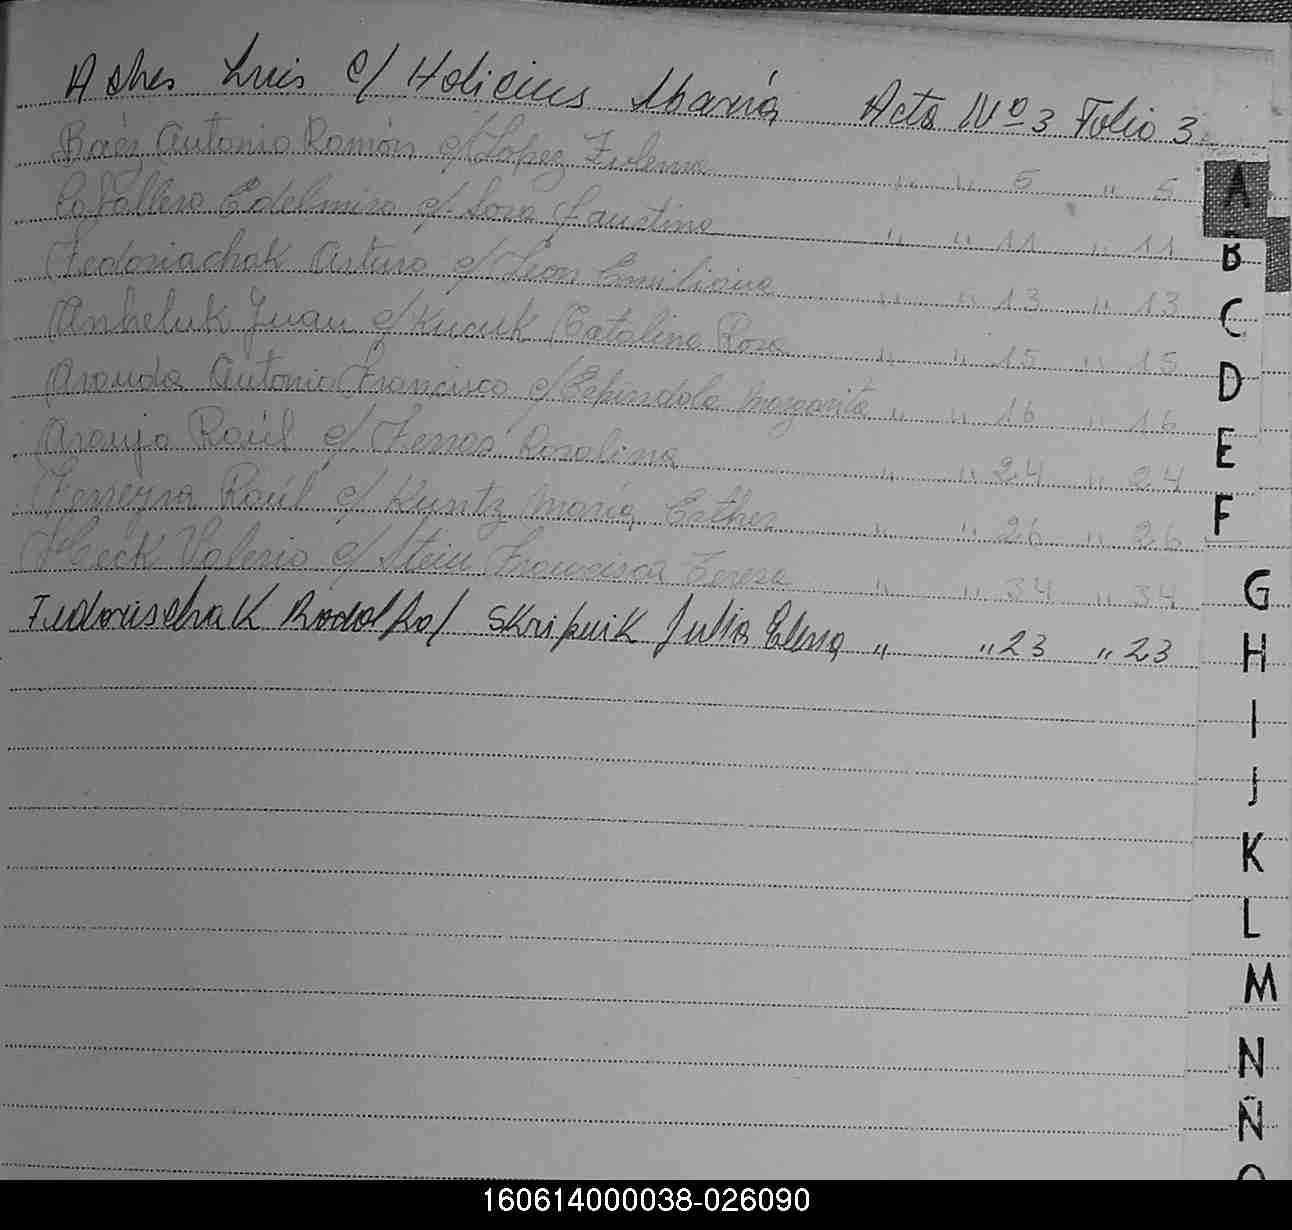 Luis c/ María Acta Nº 3 Folio 3
Báez Antonio Ramón c/ Lopez Zulema " " 5 " 5
Caballero Edelmiro c/ Sosa Faustina " " 11 " 11
Fedoriachak Arturo c/ Leon Emiliana " " 13 " 13
Anheluk Juan c/ Kucuk Catalina Rosa " " 15 " 15
Aranda Antonio Francisco c/ Margarita " " 16 " 16
Araujo Raúl c/ Rosalina " " 24 " 24
Ferreyra Raúl c/ Kuntz María Esther " " 26 " 26
Heck Valerio c/ Stein Francisca Teresa " " 34 " 34
Skripnik Julia Elena " " 23 " 23
A
B
C
D
E
F
G
H
I
J
K
L
M
N
Ñ
160614000038-026090